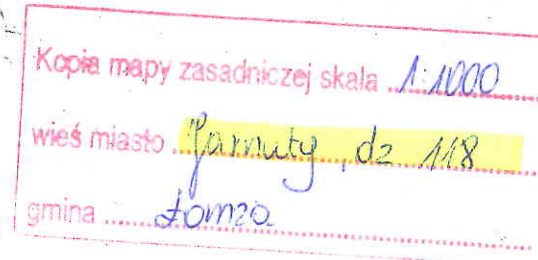 Kopia mapy zasadniczej skala 1:1000
wieś miasto Jarnuty, dz 118
gmina Łomża